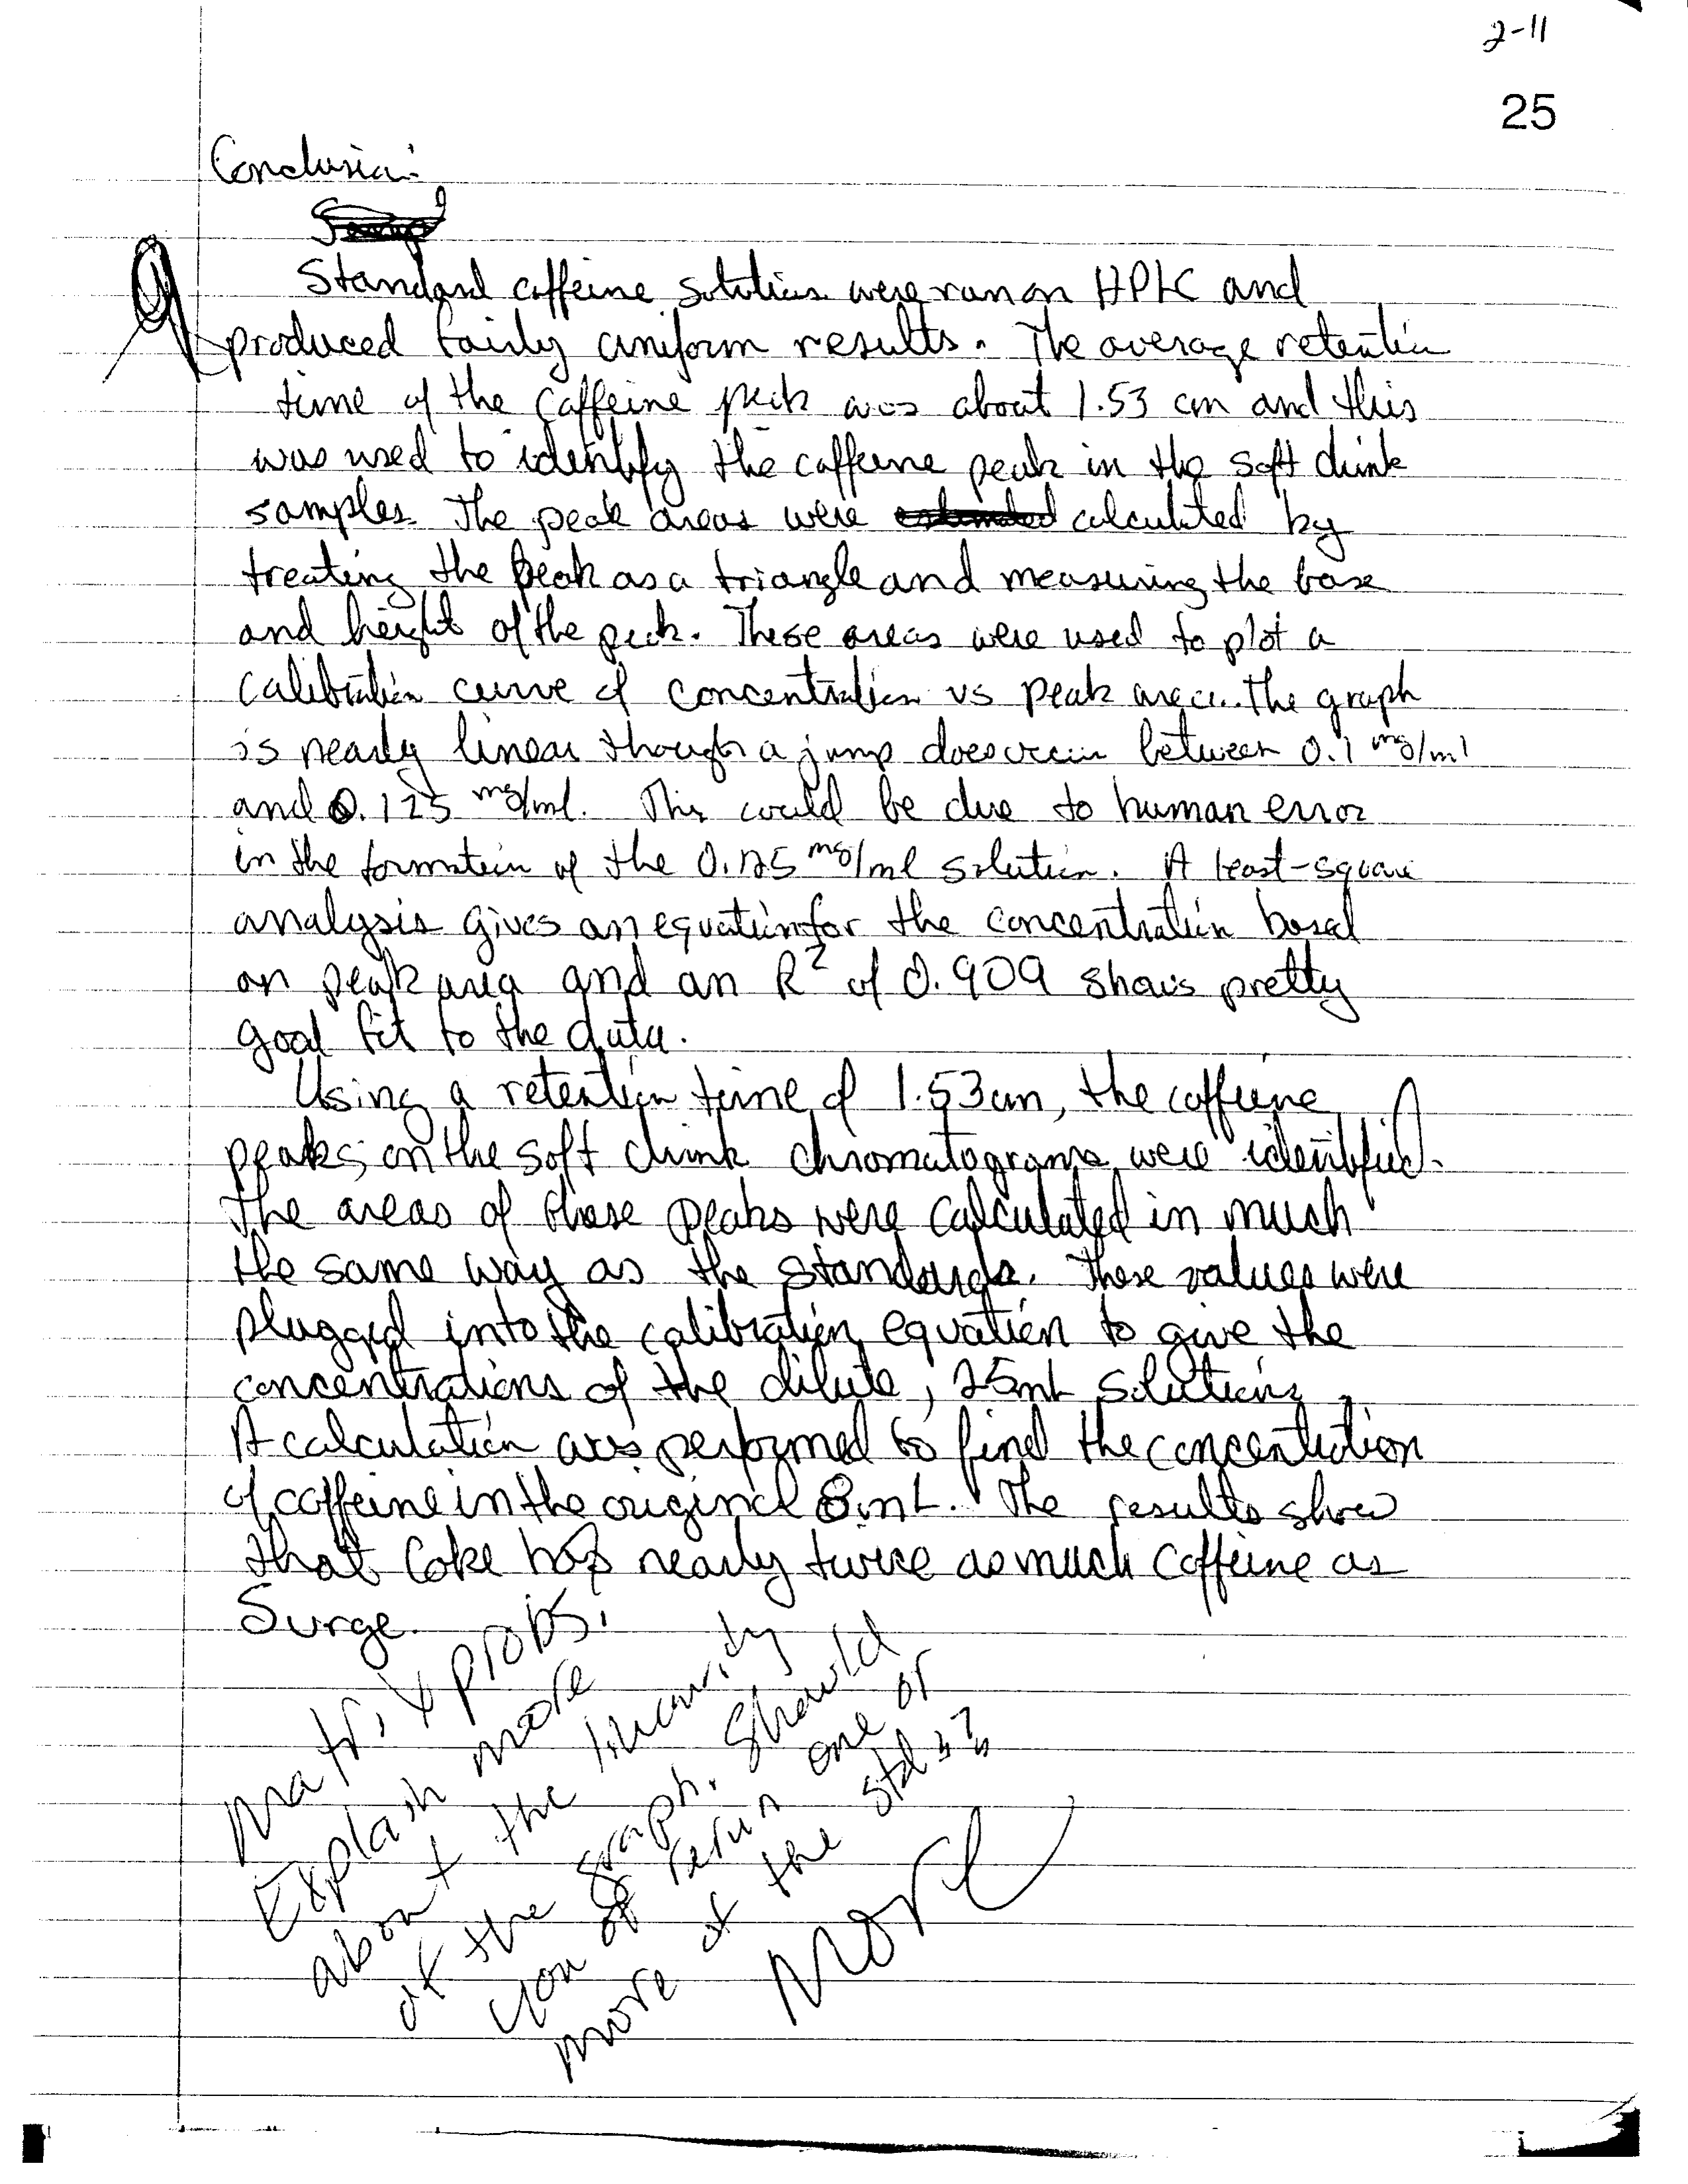 2-11
25
Conclusion:
Standard caffeine solutions were run on HPLC and
produced fairly uniform results. The average retention
time of the caffeine peak was about 1.53 cm and this
was used to identify the caffeine peak in the soft drink
samples. The peak areas were estimated calculated by
treating the peak as a triangle and measuring the base
and height of the peak. These areas were used to plot a
calibration curve of concentration vs peak area. The graph
is nearly linear though a jump does occur between 0.1 mg/ml
and 0.125 mg/ml. This could be due to human error
in the formation of the 0.125 mg/ml solution. A least-square
analysis gives an equation for the concentration based
on peak area and an R² of 0.909 shows pretty
good fit to the data.
Using a retention time of 1.53 cm, the caffeine
peaks on the soft drink chromatograms were identified.
The areas of those peaks were calculated in much
the same way as the standards. These values were
plugged into the calibration equation to give the
concentrations of the dilute, 25mL solutions.
A calculation was performed to find the concentration
of caffeine in the original 8mL. The results show
that Coke has nearly twice as much caffeine as
Surge.
Matrix probs.
Explain more
about the linearity
of the graph. Should
you of rerun one or
more of the std's??
More